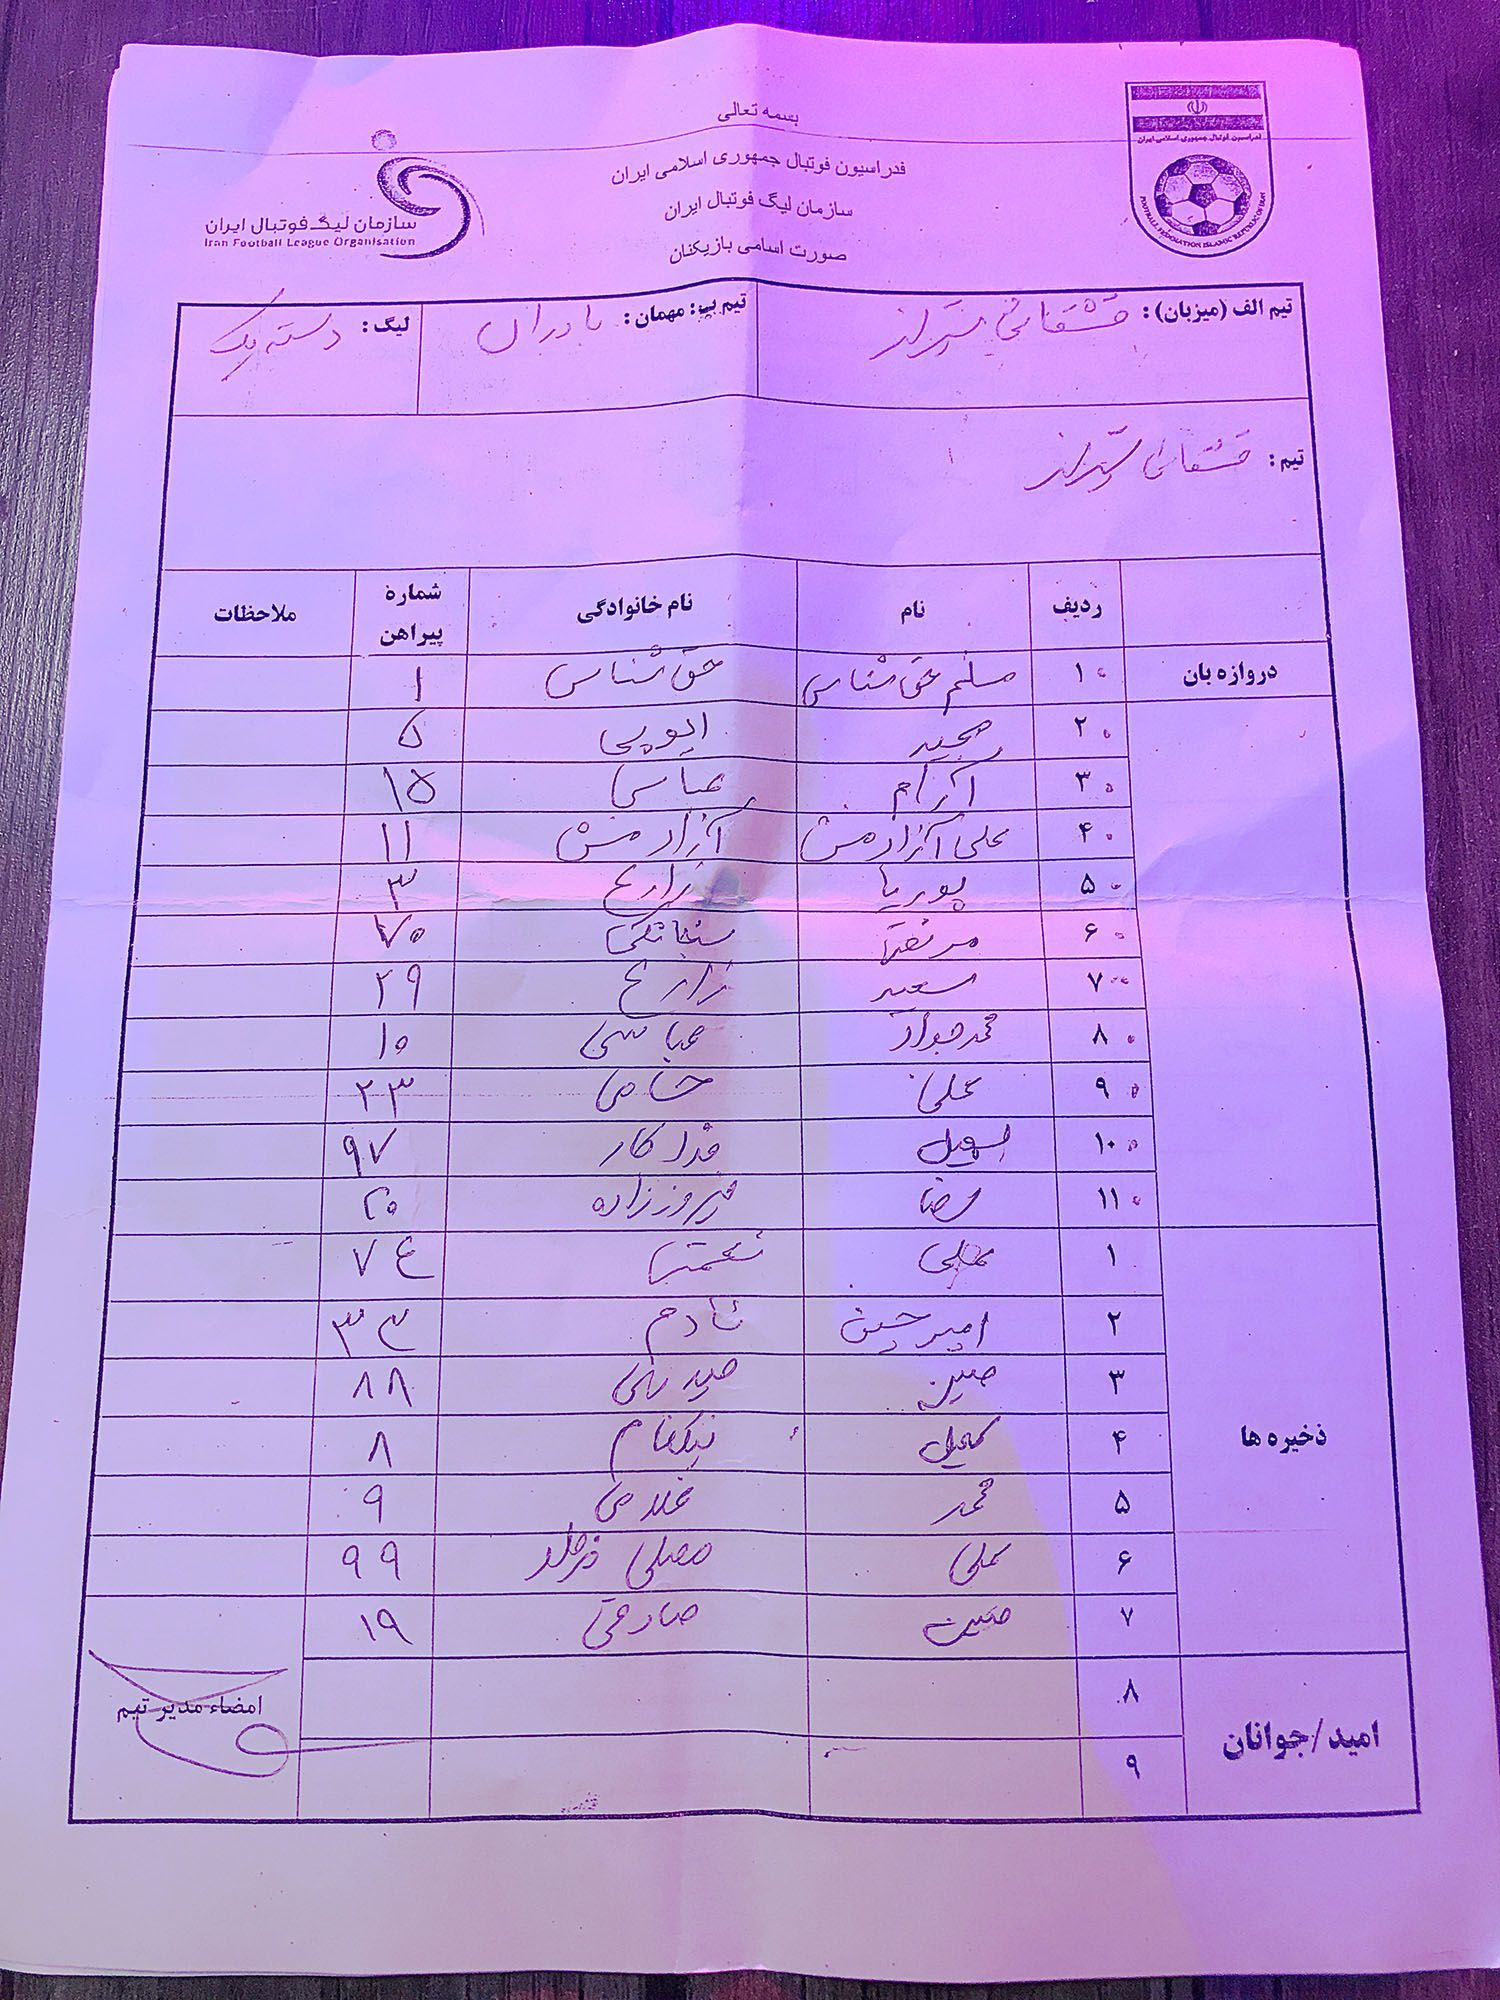 بسمه تعالی
فدراسیون فوتبال جمهوری اسلامی ایران
سازمان لیگ فوتبال ایران
صورت اسامی بازیکنان
فدراسیون فوتبال جمهوری اسلامی ایران
FOOTBALL FEDERATION ISLAMIC REPUBLIC OF IRAN
سازمان لیگ فوتبال ایران
Iran Football League Organisation
تیم الف (میزبان): قشقائی شیراز تیم ب: مهمان: بادران لیگ: دسته یک
تیم: قشقائی شیراز
ردیف نام نام خانوادگی شمارهٔ پیراهن ملاحظات
دروازه بان ۱ مسلم حق شناس حق شناس ۱
۲ مجید ایوبی ۵
۳ آرام عباسی ۱۵
۴ علی آزادمنش آزادمنش ۱۱
۵ پوریا زارع ۳
۶ مرتضی ۷۰
۷ سعید زارع ۲۹
۸ محمدجواد عباسی ۱۰
۹ علی خامی ۲۳
۱۰ سهیل فداکار ۹۷
۱۱ رضا فیروززاده ۲۰
ذخیره ها
۱ علی نعمتی ۷۴
۲ امیرحسین نادم ۳۳
۳ مبین حیدری ۸۸
۴ کمیل نیکنام ۸
۵ محمد غلامی ۹
۶ علی ۹۹
۷ متین صادقی ۱۹
امید/جوانان
۸
۹
امضاء مدیر تیم